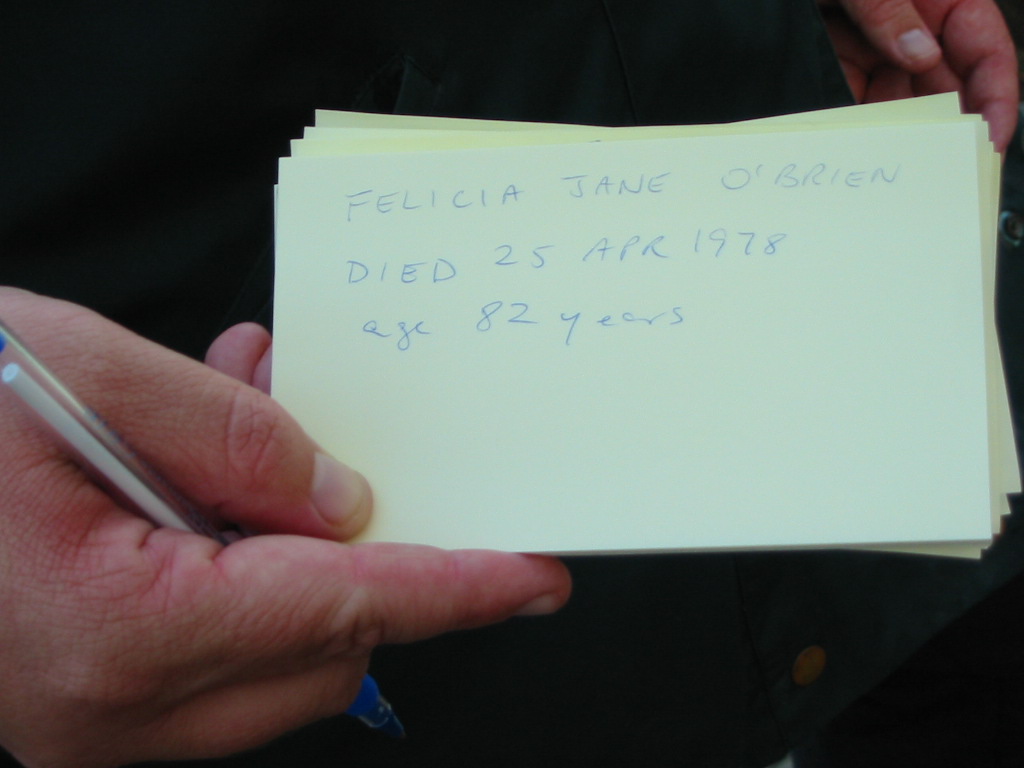 FELICIA JANE O'BRIEN
DIED 25 APR 1978
age 82 years